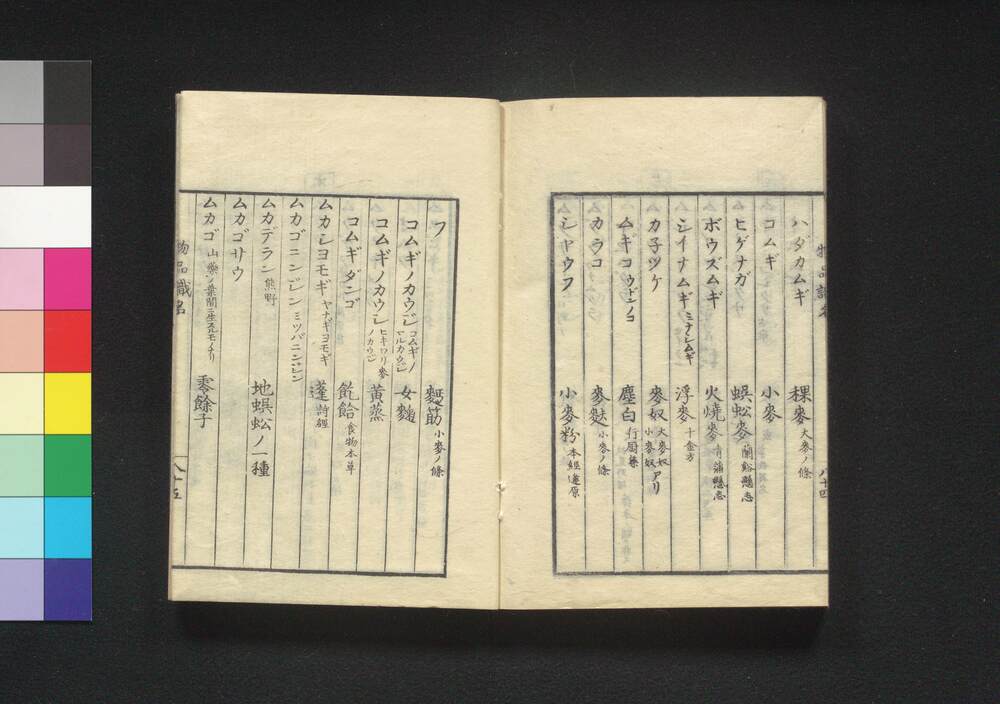 ハダカムギ 稞麥 大麥ノ條
コムギ 小麥
ヒゲナガ 蜈蚣麥 蘭谿縣志
ボウズムギ 火燒麥 青蒲縣志
シイナムギ ミナシムギ 浮麥 千金方
カ子ツケ 麥奴 大麥奴 小麥奴アリ
ムギコ ウドンノコ 塵白 行厨集
カラコ 麥麩 小麥ノ條
シャウフ 小麥粉 本經逢原
八十四
フ 麪筋 小麥ノ條
コムギノカウジ コムギノマルカウジ 女麴
コムギノカウジ ヒキワリ麥ノカウジ 黃蒸
コムギダンゴ 飥飴 食物本草
ムカシヨモギ ヤナギヨモギ 蓬 詩經
ムカゴニンジン ミツバニンジン
ムカデラン 熊野 地蜈蚣ノ一種
ムカゴサウ
ムカゴ 山藥ノ葉間ニ生ズルモノナリ 零餘子
物品識名 八十五